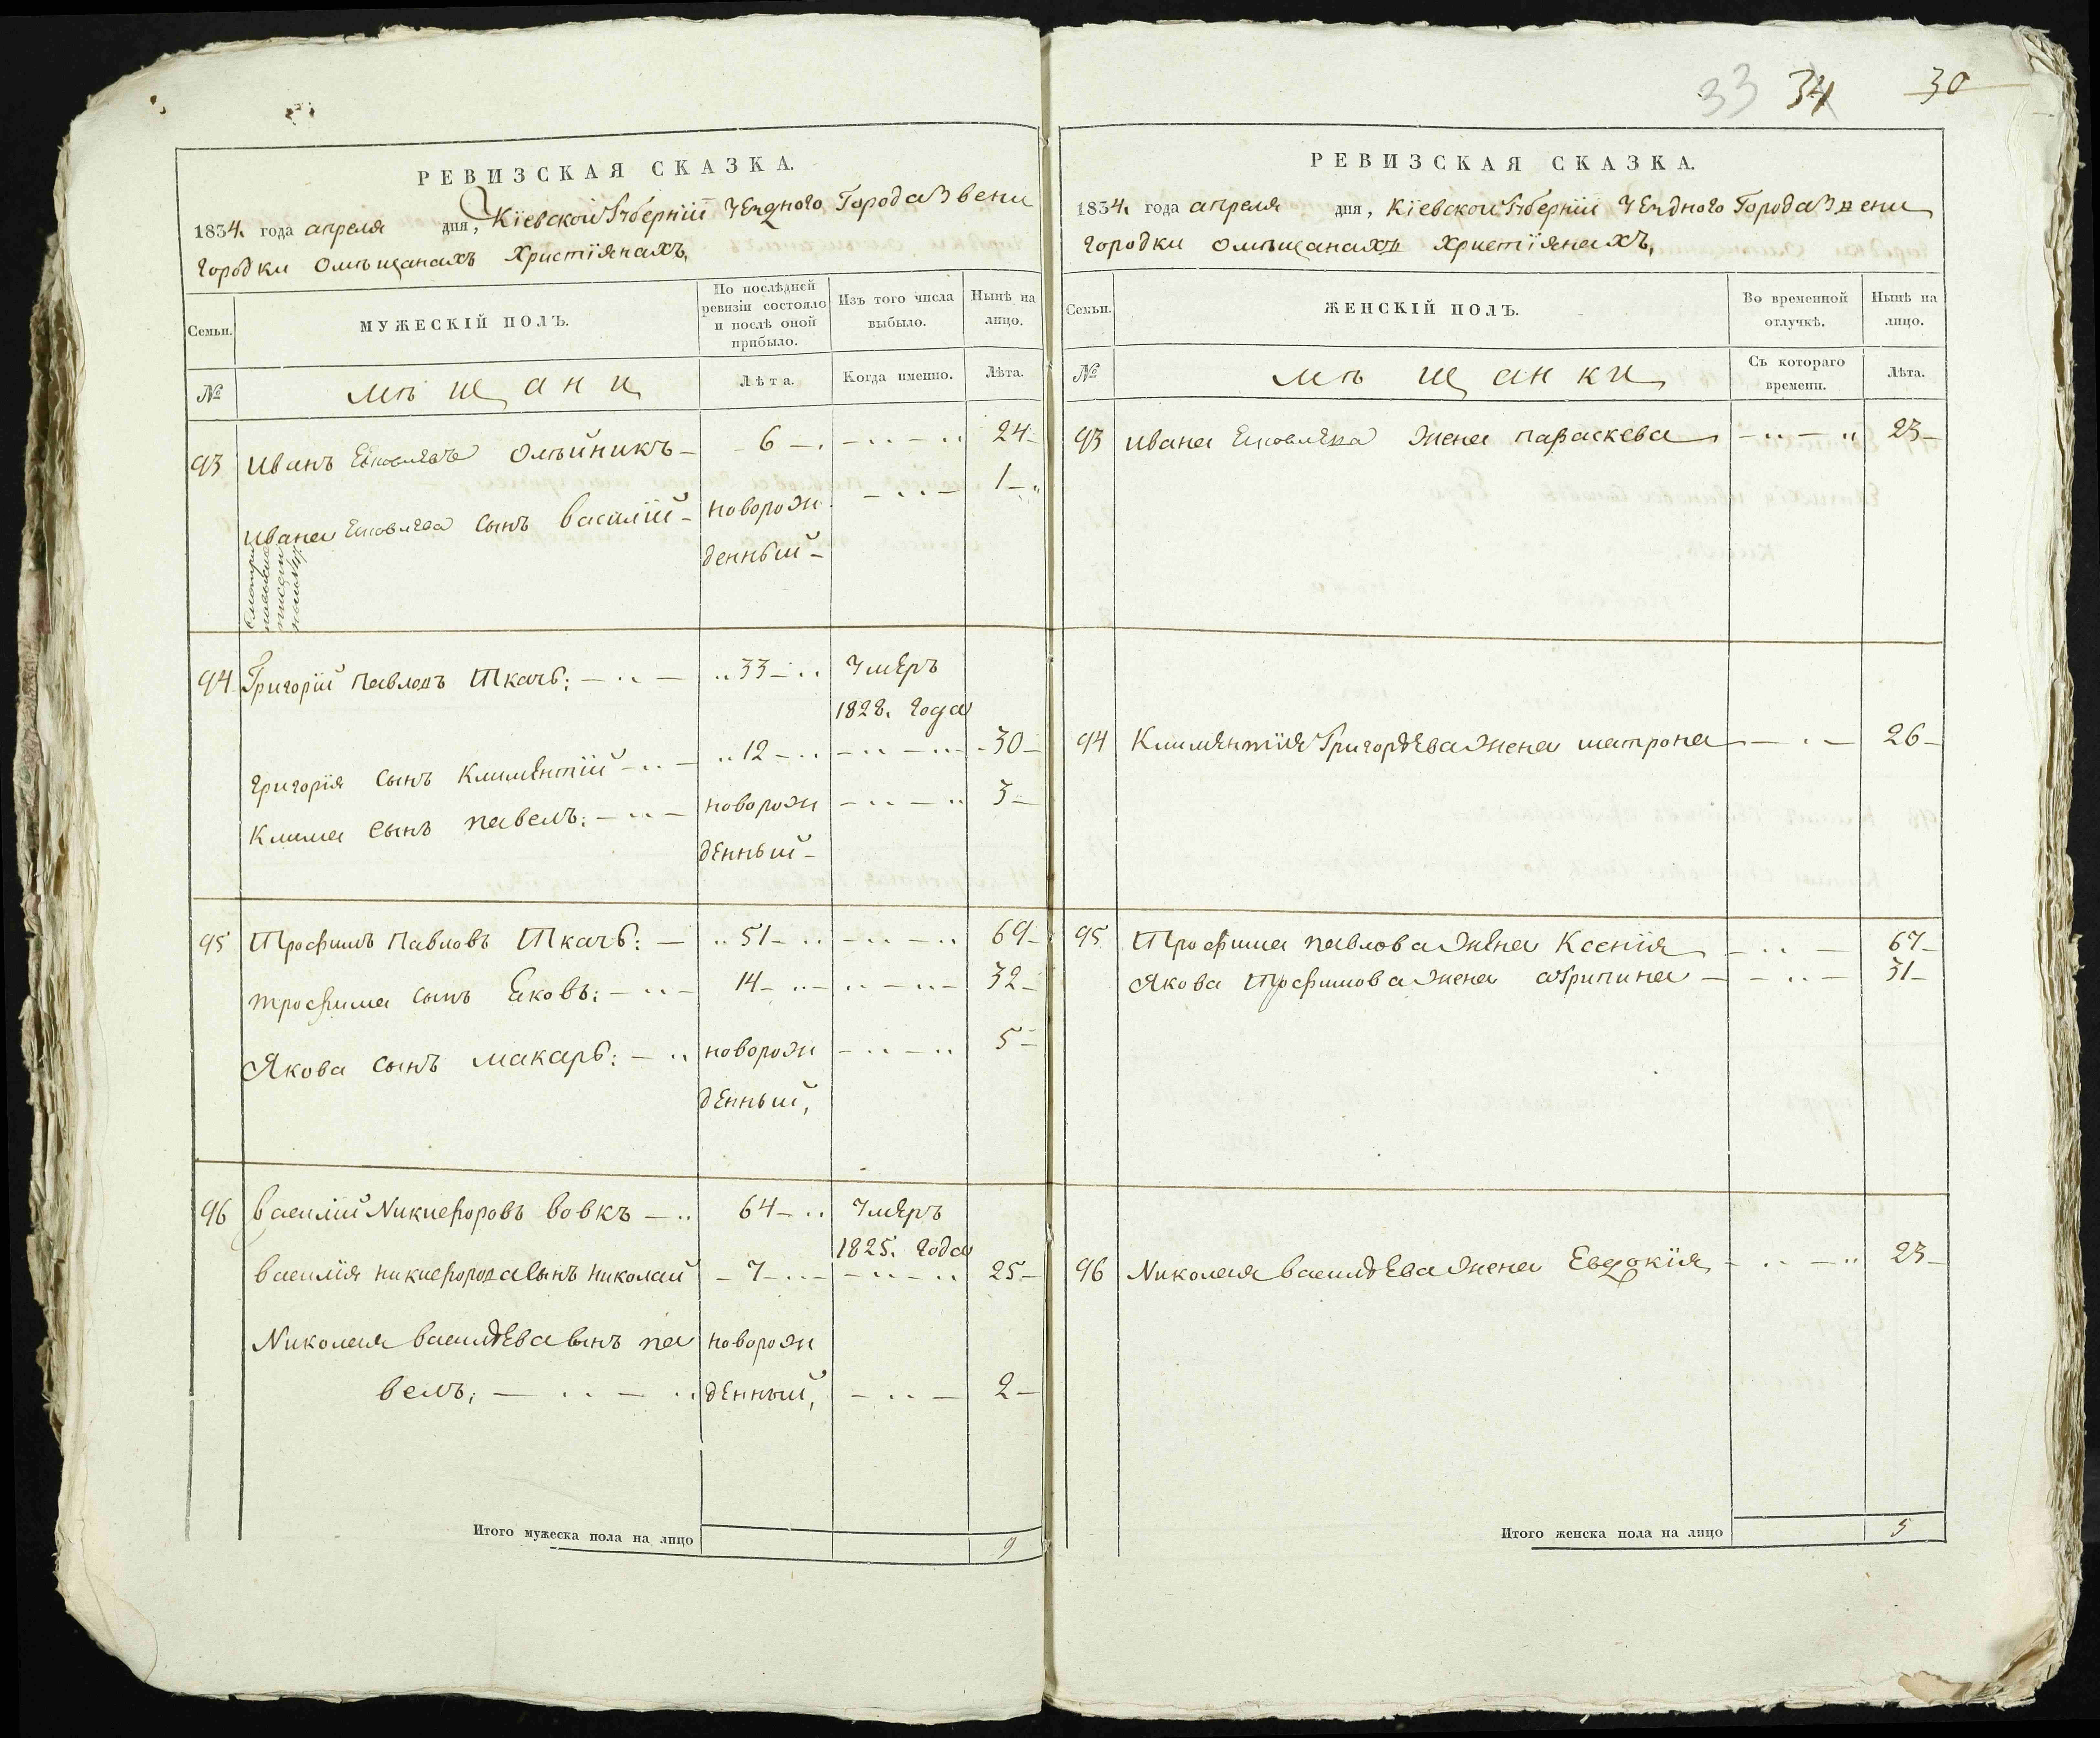 33 34 30
РЕВИЗСКАЯ СКАЗКА.
1834. года апреля дня, Кіевской Губерніи Уездного Города Звени
городки Омѣщанахъ Христіянахъ,
Семьи. МУЖЕСКІЙ ПОЛЪ. По послѣдней ревизіи состояло и послѣ оной прибыло. Изъ того числа выбыло. Нынѣ на лицо.
№ мѣщани Лѣта. Когда именно. Лѣта.
93 Иванъ Олѣйникъ — 6 —. — .. — .. 24 —
Ивана сынъ Василій — новорож — .. — 1 —
денный —
94 Григорій Павловъ Ткачь: — .. — .. 33 — .. Умеръ
1828. года
Григорія сынъ Климентій — .. — .. 12 — .. — .. — .. 30 —
Клима сынъ Павелъ: — .. — новорож — .. — .. 3 —
денный —
95 Трофимъ Павловъ Ткачь: — .. 51 — .. — .. — .. 69 —
Трофима сынъ Ековъ: — .. — 14 — .. — .. — .. — 32 —
Якова сынъ Макарь: — .. новорож — .. — .. 5 —
денный,
96 Василій Никифоровъ Вовкъ — .. 64 — .. Умеръ
1825. года
Василія Никифорова сынъ Николай — 7 — .. — — .. — .. 25 —
Николая Васильева сынъ Па новорож
велъ; — .. — .. денный, — .. — 2 —
Итого мужеска пола на лицо 9
РЕВИЗСКАЯ СКАЗКА.
1834. года апреля дня, Кіевской Губерніи Уездного Города Звени
городки Омѣщанахъ Христіянахъ,
Семьи. ЖЕНСКІЙ ПОЛЪ. Во временной отлучкѣ. Нынѣ на лицо.
№ мѣщанки Съ котораго времени. Лѣта.
93 Ивана жена Параскева — .. — .. 23 —
94 Климентія Григорьева жена Матрона — . — 26 —
95 Трофима Павлова жена Ксенія — .. — 67 —
Якова Трофимова жена аГрипина — — .. — 31 —
96 Николая Васильева жена Евдокія — .. — .. 23 —
Итого женска пола на лицо 5